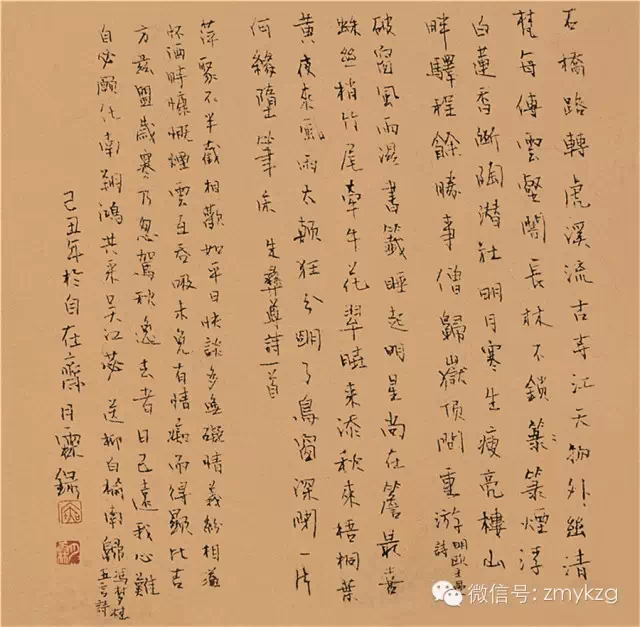 石橋路轉虎溪流古寺江天物外幽清
梵每傳雲壑闇長林不鎖篆篆煙浮
白蓮香斷陶潛社明月寒生瘦亮樓山
畔驛程餘勝事僧歸嶽頂問重游 明歐詩
破窗風雨濕書籤睡起明星尚在簷最喜
蛛絲梢竹尾牽牛花翠曉來添秋來梧桐葉
黄夜來風雨太顛狂分明了鳥窗深閉一片
何緣墮筆床 朱彝尊詩一首
萍聚不半載相歡如平日快談多無礙情義紛相溢
杯酒時慷慨煙雲互吞吸未免有情痴而得顯比吉
方茲盟歲寒乃忽駕秋逸去者日已遠我心難
自必願化南翔鴻共采吴江苾 送柳白榆南歸 五言詩
己丑年於自在齋月霖録
微信号: zmykzg